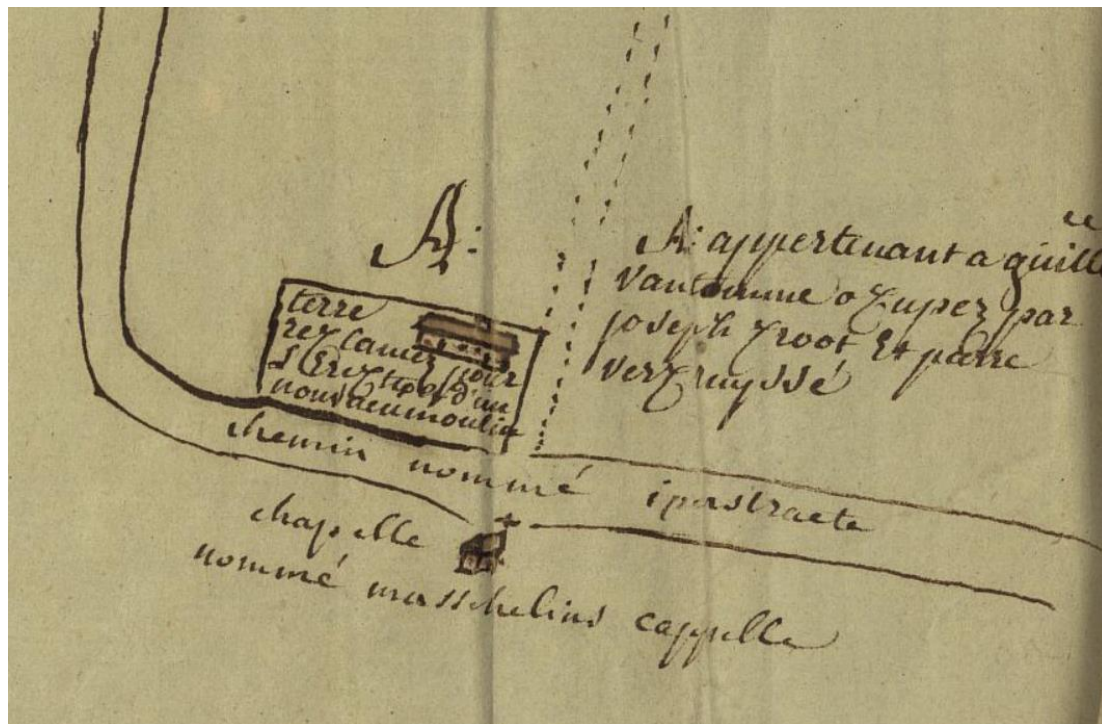 A:
terre
rezlamez pour
l'Erextion d'un
nouvaeu moulin
A: appertenant a guille
vantomme ozupez par
joseph Zroot Et pierre
verzruyssé
chemin nommé iperstraete
chapelle
nommé masschelins cappelle